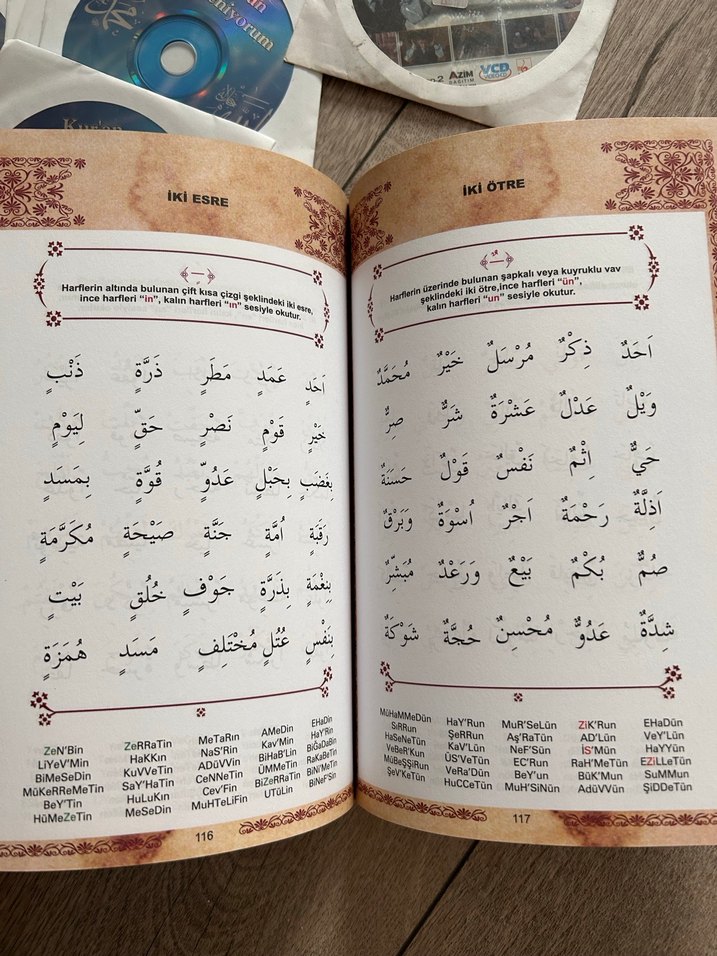 eniyorum
Kur'an
AZİM
DAĞITIM
VCD
İKİ ESRE
Harflerin altında bulunan çift kısa çizgi şeklindeki iki esre,
ince harfleri “in”, kalın harfleri “ın” sesiyle okutur.
اَحَدٍ عَمَدٍ مَطَرٍ ذَرَّةٍ ذَنْبٍ
خَيْرٍ قَوْمٍ نَصْرٍ حَقٍّ لِيَوْمٍ
بِغَضَبٍ بِحَبْلٍ عَدُوٍّ قُوَّةٍ بِمَسَدٍ
رَقَبَةٍ اُمَّةٍ جَنَّةٍ صَيْحَةٍ مُكَرَّمَةٍ
بِنِعْمَةٍ بِذَرَّةٍ جَوْفٍ خُلُقٍ بَيْتٍ
بِنَفْسٍ عُتُلٍ مُخْتَلِفٍ مَسَدٍ هُمَزَةٍ
ZeN'Bin ZeRRaTin MeTaRın AMeDin EHaDin
LiYeV'Min HaKKın NaS'Rin Kav'Min HaY'Rin
BiMeSeDin KuVVeTin ADüVVin BiHaB'Lin BiĞaDaBin
MüKeRReMeTin SaY'HaTin CeNNeTin ÜMMeTin RaKaBeTin
BeY'Tin HuLuKın Cev'Fin BiZeRRaTin BiNi'MeTin
HüMeZeTin MeSeDin MuHTeLiFin UTüLin BiNeF'Sin
116
İKİ ÖTRE
Harflerin üzerinde bulunan şapkalı veya kuyruklu vav
şeklindeki iki ötre,ince harfleri “ün”,
kalın harfleri “un” sesiyle okutur.
اَحَدٌ ذِكْرٌ مُرْسَلٌ خَيْرٌ مُحَمَّدٌ
وَيْلٌ عَدْلٌ عَشْرَةٌ شَرٌّ صِرٌّ
حَيٌّ اِثْمٌ نَفْسٌ قَوْلٌ حَسَنَةٌ
اَذِلَّةٌ رَحْمَةٌ اَجْرٌ اُسْوَةٌ وَبَرْقٌ
صُمٌّ بُكْمٌ بَيْعٌ وَرَعْدٌ مُبَشِّرٌ
شِدَّةٌ عَدُوٌّ مُحْسِنٌ حُجَّةٌ شَوْكَةٌ
MüHaMMeDün HaY'Run MuR'SeLün ZiK'Run EHaDün
SıRRun ŞeRRun Aş'RaTün AD'Lün VeY'Lün
HaSeNeTün KaV'Lün NeF'Sün İS'Mün HaYYün
VeBeR'Kun ÜS'VeTün EC'Run RaH'MeTün EZiLLeTün
MüBeŞŞiRun VeRa'Dün BeY'un BüK'Mun SuMMun
ŞeV'KeTün HuCCeTün MuH'SiNün ADüVVün ŞiDDeTün
117